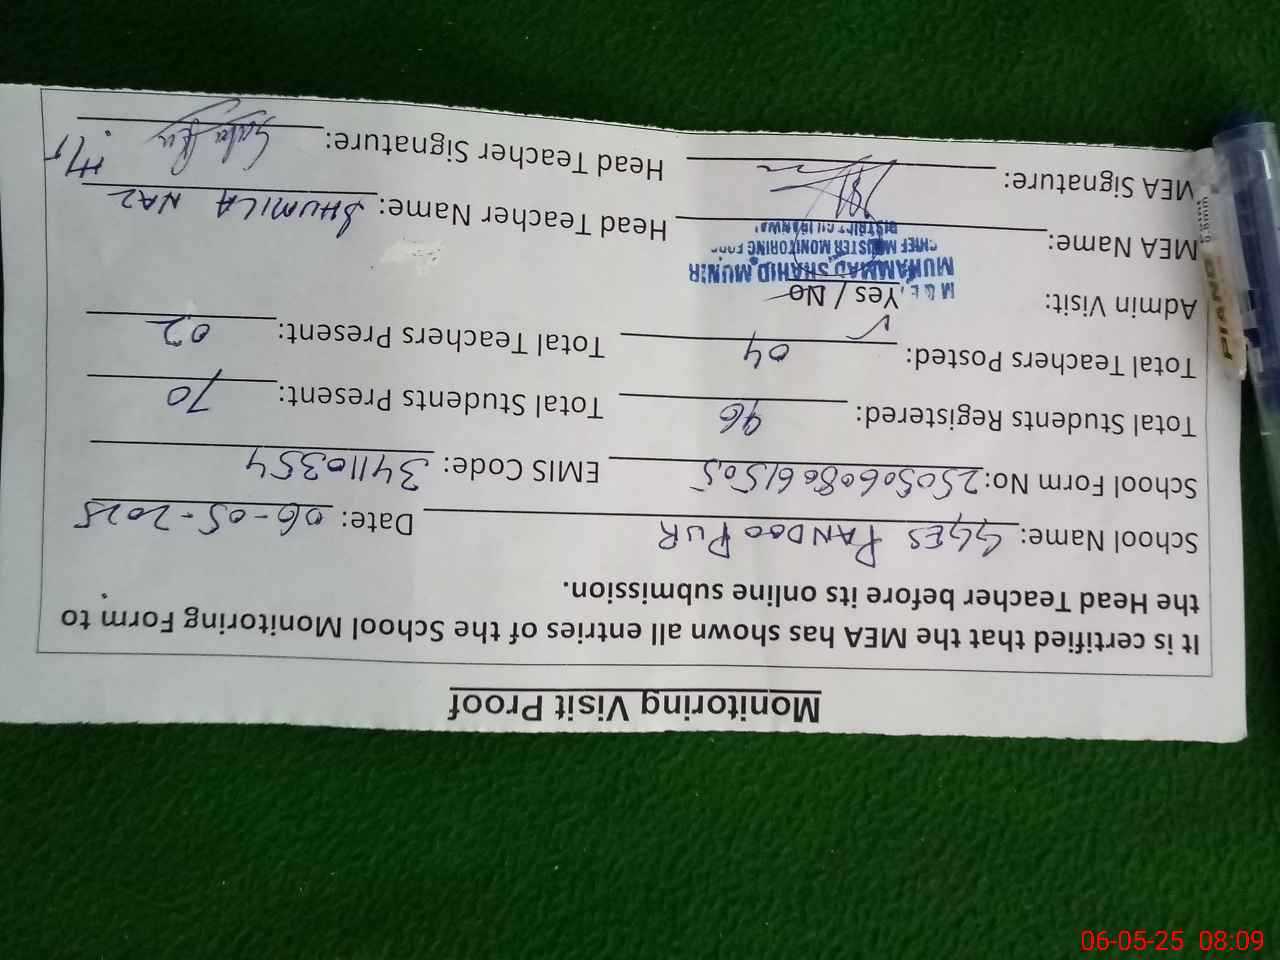 Monitoring Visit Proof
It is certified that the MEA has shown all entries of the School Monitoring Form to
the Head Teacher before its online submission.
School Name: GGES PANDOO PUR Date: 06-05-2025
School Form No: 25050608061505 EMIS Code: 34110354
Total Students Registered: 96 Total Students Present: 70
Total Teachers Posted: 04 Total Teachers Present: 02
Admin Visit: Yes / No
M & E,
MUHAMMAD SHAHID MUNIR
CHIEF MINISTER MONITORING FORCE
DISTRICT
MEA Name: Head Teacher Name: SHUMILA NAZ
MEA Signature: Head Teacher Signature:
PIANO
06-05-25 08:09